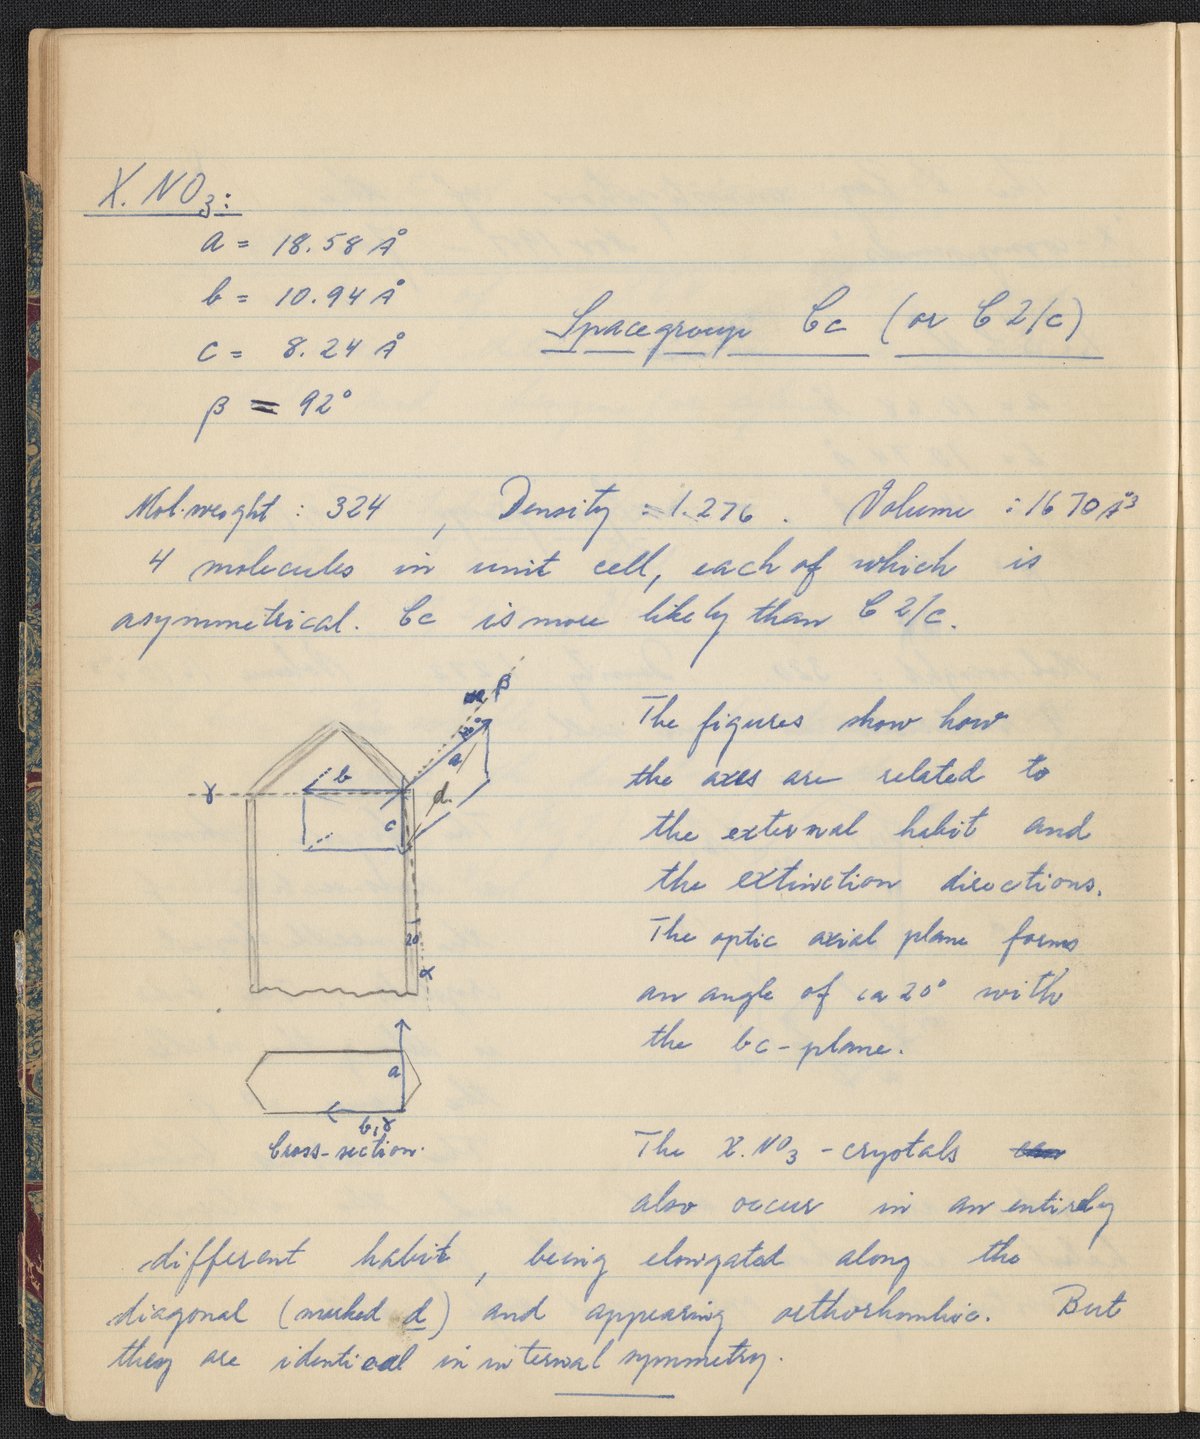 X. NO3:
a = 18.58 Å
b = 10.94 Å
c = 8.24 Å
β = 92°
Spacegroup Cc (or C 2/c)
Mol.weight : 324 , Density = 1.276 . Volume : 1670 Å3
4 molecules in unit cell, each of which is
asymmetrical. Cc is more likely than C 2/c.
β
20°
a
b
γ
d
c
20
α
The figures show how
the axes are related to
the external habit and
the extinction directions.
The optic axial plane forms
an angle of ca 20° with
the bc-plane.
a
b,γ
Cross-section.
The X.NO3-crystals
also occur in an entirely
different habit, being elongated along the
diagonal (marked d) and appearing orthorhombic. But
they are identical in internal symmetry.